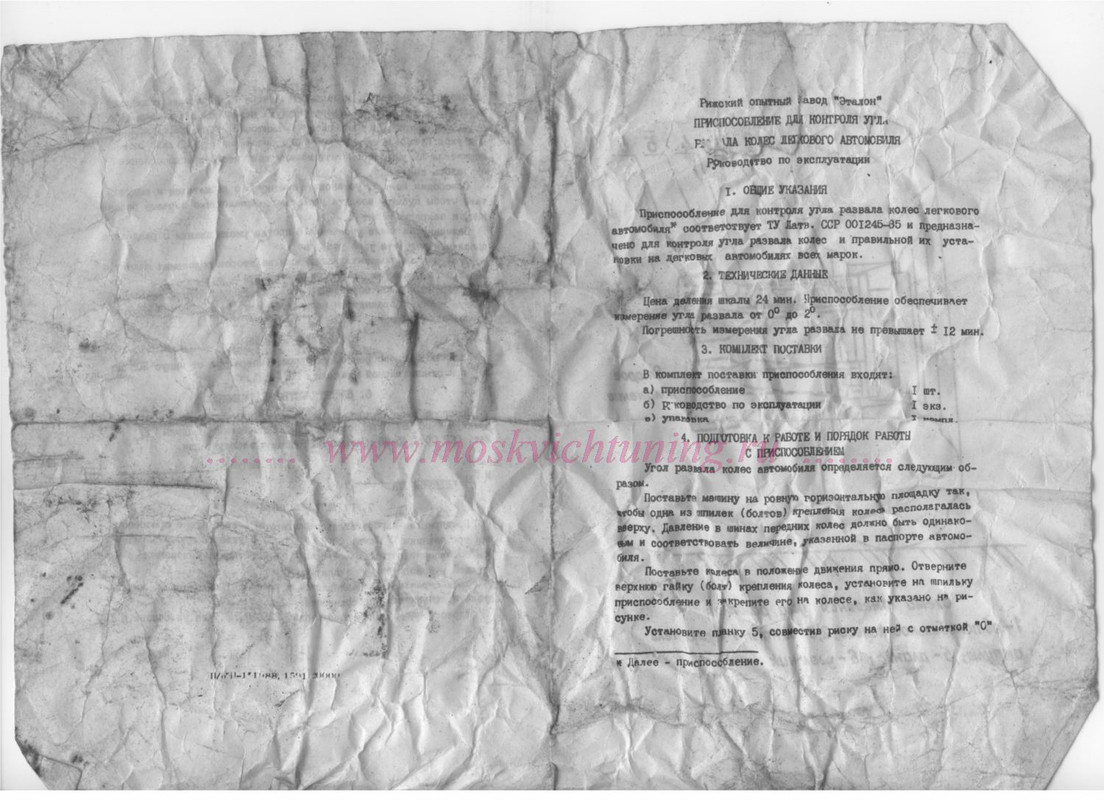 Рижский опытный завод "Эталон"
ПРИСПОСОБЛЕНИЕ ДЛЯ КОНТРОЛЯ УГЛА
КОЛЕС ЛЕГКОВОГО АВТОМОБИЛЯ
Руководство по эксплуатации
I. ОБЩИЕ УКАЗАНИЯ
Приспособление для контроля угла развала колес легкового
автомобиля" соответствует ТУ Латв. ССР 001245-85 и предназна-
чено для контроля угла развала колес и правильной их уста-
новки на легковых автомобилях всех марок.
2. ТЕХНИЧЕСКИЕ ДАННЫЕ
Цена деления шкалы 24 мин. Приспособление обеспечивает
измерение угла развала от 0° до 2°.
Погрешность измерения угла развала не превышает ± 12 мин.
3. КОМПЛЕКТ ПОСТАВКИ
В комплект поставки приспособления входит:
а) приспособление I шт.
б) руководство по эксплуатации I экз.
в) упаковка I компл.
4. ПОДГОТОВКА К РАБОТЕ И ПОРЯДОК РАБОТЫ
С ПРИСПОСОБЛЕНИЕМ
........ www.moskvichtuning.ru ........
Угол развала колес автомобиля определяется следующим об-
разом.
Поставьте машину на ровную горизонтальную площадку так,
чтобы одна из шпилек (болтов) крепления колеса располагалась
вверху. Давление в шинах передних колес должно быть одинако-
вым и соответствовать величине, указанной в паспорте автомо-
биля.
Поставьте колеса в положение движения прямо. Отверните
верхнюю гайку (болт) крепления колеса, установите на шпильку
приспособление и закрепите его на колесе, как указано на ри-
сунке.
Установите планку 5, совместив риску на ней с отметкой "0"
ж Далее - приспособление.